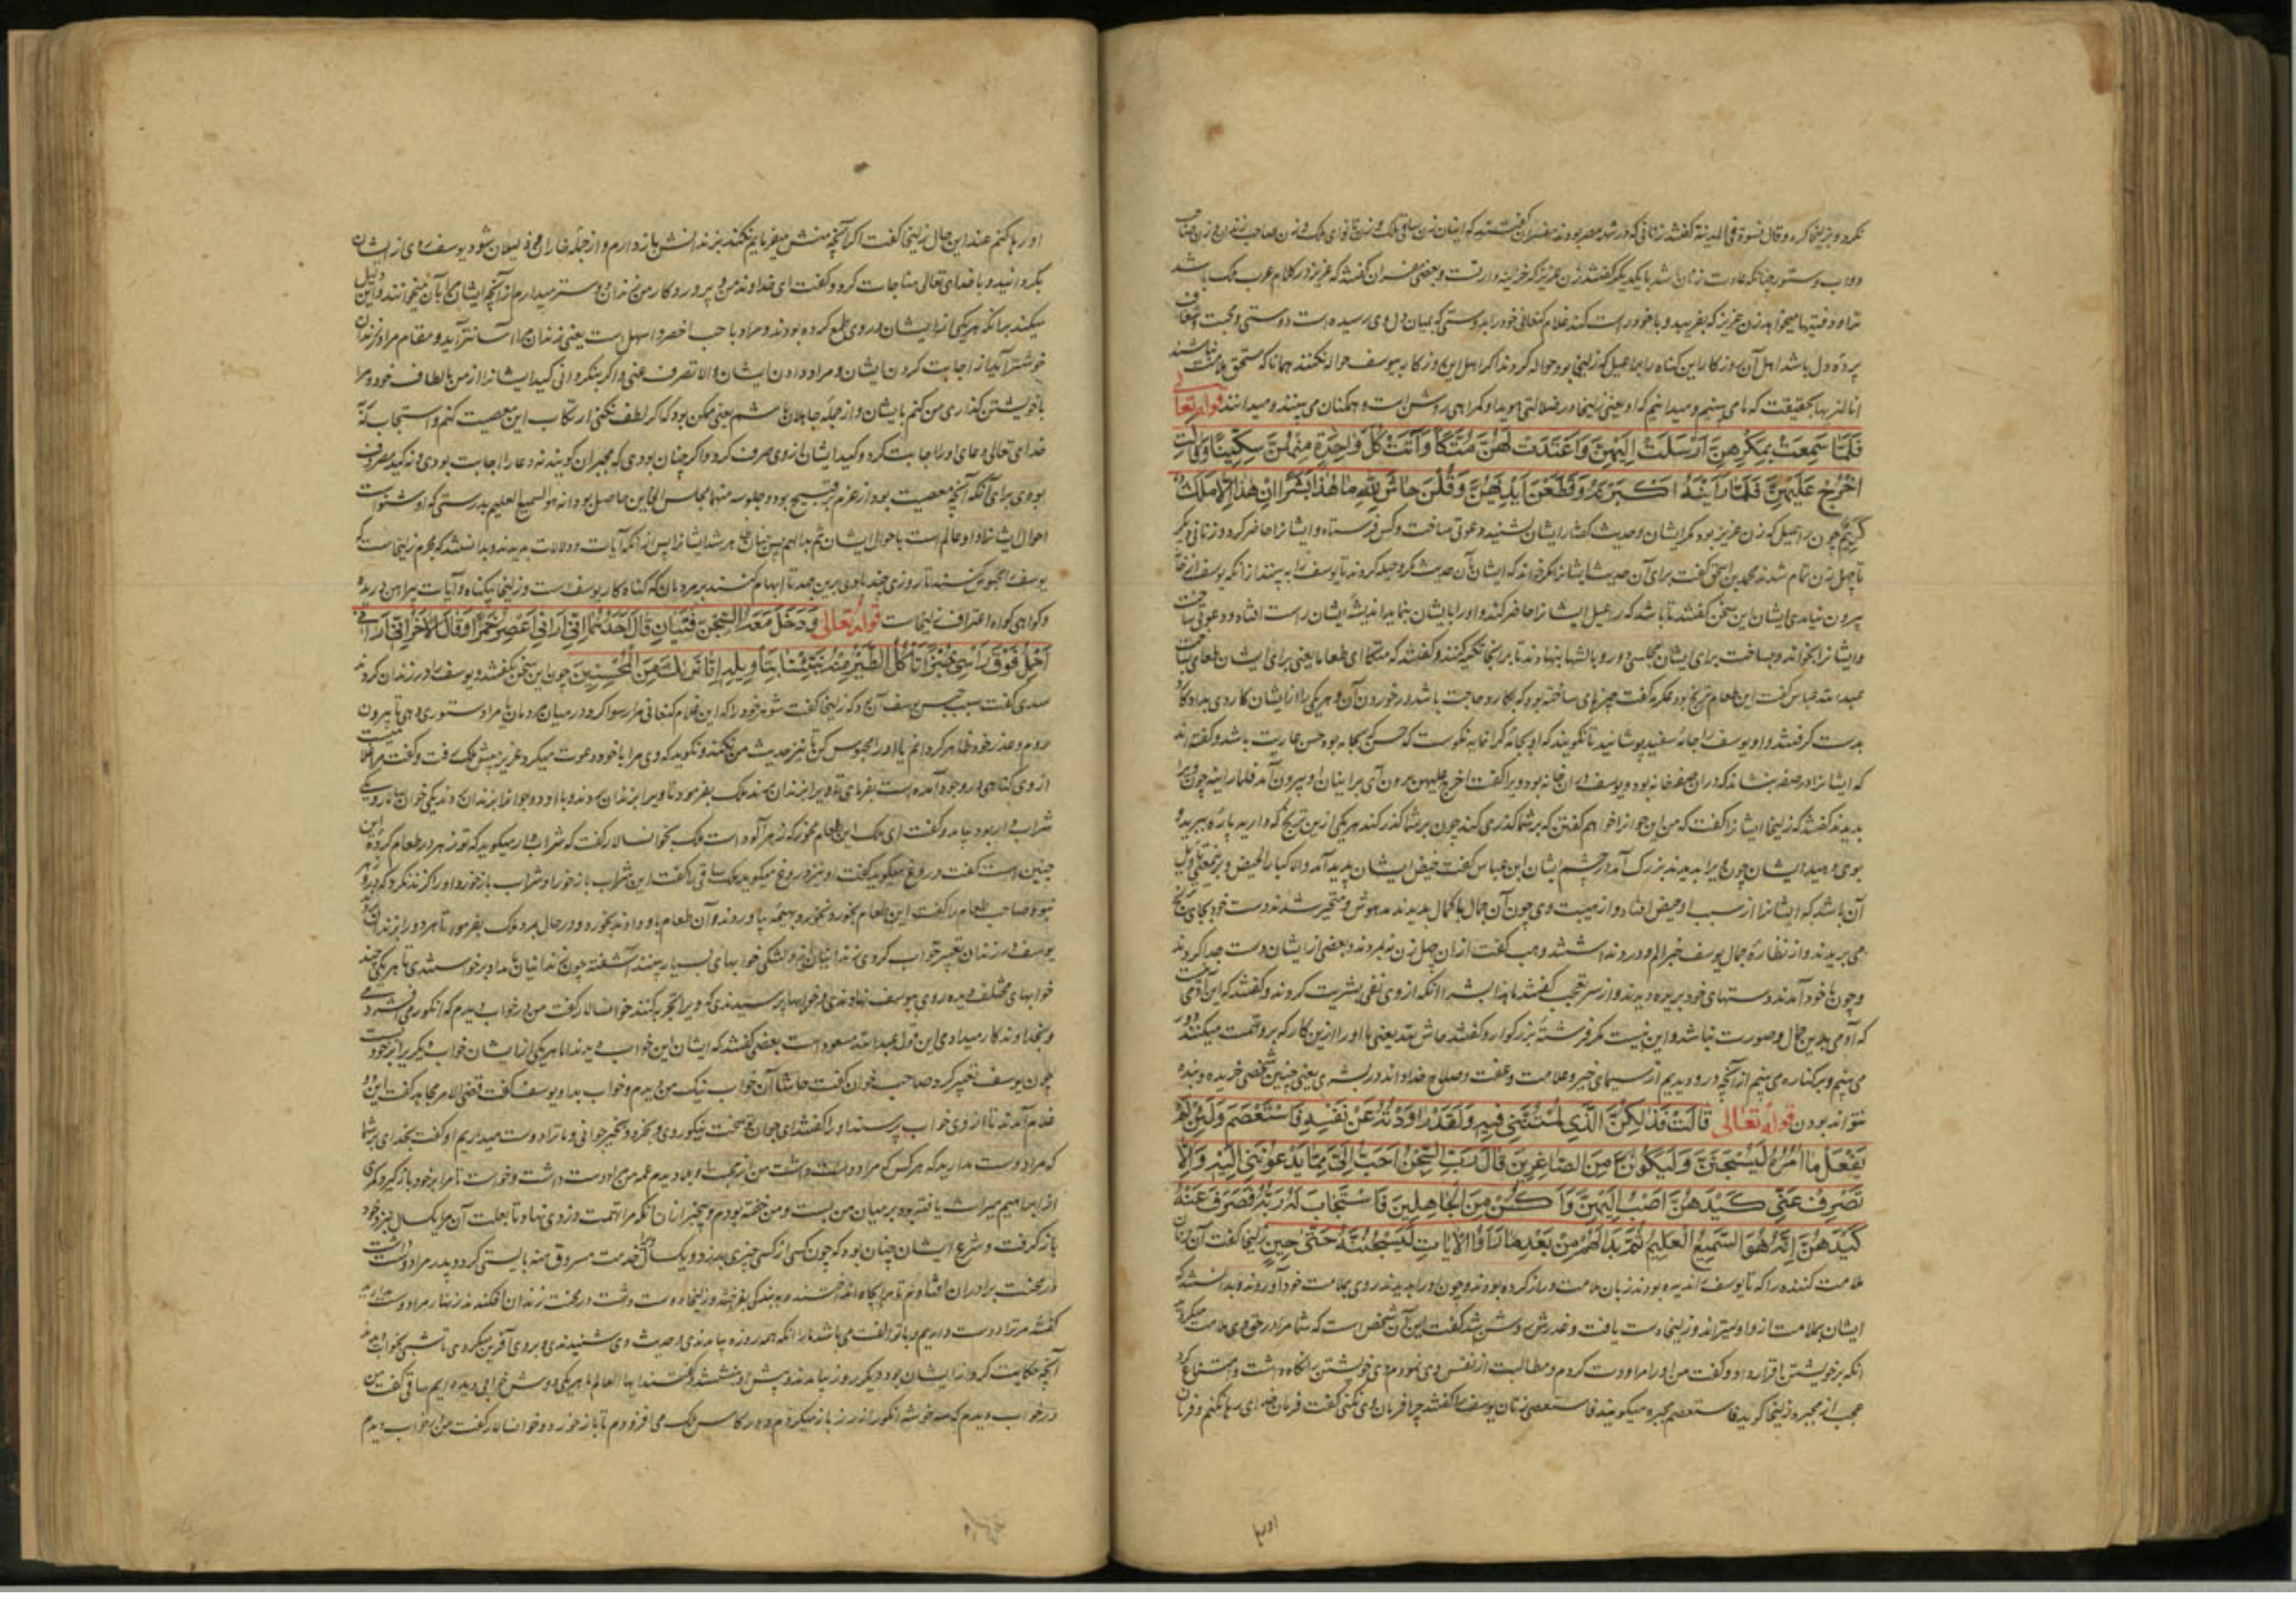 نکرد و بزلیخا کرد و قال نسوة فی المدینة گفتند زنانی که در شهر مصر بودند مفسران گفتند که اینان زن ساقی ملک و زن نانوای ملک و زن صاحب زندان و زن صاحب
دواب و دستور چنانکه عادت زنان باشد با یکدیگر گفتند زن عزیز که خزینه دار است و بعضی مفسران گفتند که عزیز در کلام عرب ملک باشد
تراود فتیها میخواهد زن عزیز که بفریبد و با خود راست کند غلام کنعانی خود را بدوستی که بمیان دل وی رسیده است دوستی و محبت و شغاف
پرده دل باشد اهل آن روزکار این کناه را براعیل که زلیخا بود حواله کردند اکر اهل این روزکار بیوسف حواله نکنند همانا که مستحق ملامت نباشند
انا لنریها بحقیقت که ما می بینیم و میدانیم که او یعنی زلیخا در ضلالتی هویدا و کمراهی روشن است و همکنان می بینند و میدانند قوله تعالی
فَلَمَّا سَمِعَتْ بِمَكْرِهِنَّ اَرْسَلَتْ اِلَيْهِنَّ وَاَعْتَدَتْ لَهُنَّ مُتَّكَأً وَآتَتْ كُلَّ وَاحِدَةٍ مِنْهُنَّ سِكِّينًا وَقَالَتِ
اخْرُجْ عَلَيْهِنَّ فَلَمَّا رَاَيْنَهُ اَكْبَرْنَهُ وَقَطَّعْنَ اَيْدِيَهُنَّ وَقُلْنَ حَاشَ لِلَّهِ مَا هَذَا بَشَرًا اِنْ هَذَا اِلَّا مَلَكٌ
كَرِيمٌ چون راعیل که زن عزیز بود مکر ایشان و حدیث گفتار ایشان بشنید دعوتی ساخت و کس فرستاد و ایشانرا حاضر کرد و زنانی دیکر
تا چهل زن تمام شدند محمد بن اسحق گفت برای آن حدیث ایشانرا مکر خواند که ایشان بآن حدیث مکر و حیله کردند تا یوسف را به بینند از آنکه یوسف از خانه
بیرون نیامدی ایشان این سخن گفتند تا باشد که راعیل ایشانرا حاضر کند و او را بایشان بنماید اندیشه ایشان راست افتاد و دعوتی ساخت
وایشانرا بخواند و بساخت برای ایشان مجلسی و در وبالشها بنهادند تا بر آنجا تکیه کنند و گفتند که متکأ ای طعاما یعنی برای ایشان طعامی بساخت
عبدالله عباس گفت این طعام ترنج بود عکرمه گفت چیزهای ساخته بود که بکارد حاجت باشد در خوردن آن و هر یکی را از ایشان کاردی بداد کارد
بدست کرفتند و او یوسف را جامه سفید پوشانید تا نکویند که او بجامه گرانمایه نکوست که حسن که بجامه بود حسن عاریت باشد و گفته اند
که ایشانرا در صفه بنشاند که در آن صفه خانه بود و یوسف در آن خانه بود ویرا گفت اخرج علیهن برون آی بر اینان او بیرون آمد فلما راینه چون ویرا
بدیدند گفتند که زلیخا ایشانرا گفت که من این جوانرا خواهم گفتن که بر شما گذری کند چون بر شما گذر کند هر یکی از این ترنج که دارید پاره ببرید و
بوی دهید ایشان چون ویرا بدیدند بزرک آمد در چشم ایشان ابن عباس گفت حیض ایشان پدید آمد
آن باشد که ایشانرا از سبب او حیض افتاد و از هیبت وی چون آن جمال با کمال بدیدند مدهوش و متحیر شدند دست خود بجای ترنج
می بریدند و از نظاره جمال یوسف خبر الم و درد نداشتند وهب گفت از آن چهل زن نه بمردند و بعضی از ایشان دست جدا کردند
و چون با خود آمدند دستهای خود بریده دیدند و از سر تعجب گفتند ما هذا بشرا آنکه از وی نفی بشریت کردند و گفتند که این آدمی نیست
که آدمی بدین جمال و صورت نباشد و این نیست مکر فرشته بزرکوار و گفتند حاش لله یعنی ما او را ازین کار که برو تهمت میکنند دور
می بینیم و برکناره می بینیم از آنچه درو دیدیم از سیمای خیر و علامت وعفت و صلاح خدا داند در بشری یعنی چنین شخصی خریده و بنده
نتواند بودن قوله تعالی قَالَتْ فَذَلِكُنَّ الَّذِي لُمْتُنَّنِي فِيهِ وَلَقَدْ رَاوَدْتُهُ عَنْ نَفْسِهِ فَاسْتَعْصَمَ وَلَئِنْ لَمْ
يَفْعَلْ مَا آمُرُهُ لَيُسْجَنَنَّ وَلَيَكُونًا مِنَ الصَّاغِرِينَ قَالَ رَبِّ السِّجْنُ اَحَبُّ اِلَيَّ مِمَّا يَدْعُونَنِي اِلَيْهِ وَاِلَّا
تَصْرِفْ عَنِّي كَيْدَهُنَّ اَصْبُ اِلَيْهِنَّ وَاَكُنْ مِنَ الْجَاهِلِينَ فَاسْتَجَابَ لَهُ رَبُّهُ فَصَرَفَ عَنْهُ
كَيْدَهُنَّ اِنَّهُ هُوَ السَّمِيعُ الْعَلِيمُ ثُمَّ بَدَا لَهُمْ مِنْ بَعْدِ مَا رَاَوُا الْآيَاتِ لَيَسْجُنُنَّهُ حَتَّى حِينٍ زلیخا گفت آن زنان
ملامت کننده را که تا یوسف را ندیده بودند زبان ملامت دراز کرده بودند و چون او را بدیدند روی بملامت خود آوردند و بدانستند که
ایشان بملامت ازو اولیتراند و زلیخا دست یافت و عذرش روشن شد گفت این آن شخص است که شما مرا در حق وی ملامت میکردید
آنکه بر خویشتن اقرار داد و گفت من او را مراودت کردم و مطالبت از نفس وی نمودم وی خویشتن را نکاه داشت و امتناع کرد
عجب از مجبره زلیخا کوید فاستعصم مجبره میکویند فاستعصی زنان یوسف را گفتند چرا فرمان وی نکنی گفت فرمان خدای رها نکنم و فرمان
او رها
او رها کنم عند این حال زلیخا گفت اکر آنچه منش میفرمایم نکند بزندانش بازدارم و از جمله خاران و ذلیلان شود یوسف روی از ایشان
بگردانید و با خدای تعالی مناجات کرد و گفت ای خداوند من و پروردکار من زندان دوستر میدارم از آنچه ایشان مرا بآن میخوانند و این دلیل
میکند برانکه هر یکی از ایشان در وی طمع کرده بودند و مراد باحب اخف و اسهل است یعنی زندان مرا آسانتر آید و مقام مرا در زندان
خوشتر آید از اجابت کردن ایشان و مراد دادن ایشان والا تصرف عنی و اکر بنکردانی کید ایشانرا از من بالطاف خود و مرا
باخویشتن گذاری من کنم بایشان و از جمله جاهلان باشم یعنی ممکن بود که اکر لطف نکنی ارتکاب این معصیت کنم و استجاب له
خدای تعالی دعای او را اجابت کرد و کید ایشان از وی صرف کرد و اکر چنان بودی که مجبران گویند نه دعا را اجابت بودی و نه کید مصروف
بودی برای آنکه آنچه معصیت بود از عزم بر قبیح بود و جلوسه منها مجلس الخاین حاصل بود انه هو السمیع العلیم بدرستی که او شنواست
احوال ایشانرا و او عالم است باحوال ایشان ثم بدا لهم پس چنان ظاهر شد ایشانرا پس از آنکه آیات و دلالات بدیدند و بدانستند که مجرم زلیخاست که
یوسف را محبوس کنند تا روزی چند تا ابهام کنند بر مردمان که گناه کار یوسف است و زلیخا بیکناه و آیات پیراهن دریده
و کواهی کواه و اعتراف زلیخاست قوله تعالی وَدَخَلَ مَعَهُ السِّجْنَ فَتَيَانِ قَالَ اَحَدُهُمَا اِنِّي اَرَانِي اَعْصِرُ خَمْرًا وَقَالَ الْآخَرُ اِنِّي اَرَانِي
اَحْمِلُ فَوْقَ رَأْسِي خُبْزًا تَأْكُلُ الطَّيْرُ مِنْهُ نَبِّئْنَا بِتَأْوِيلِهِ اِنَّا نَرَاكَ مِنَ الْمُحْسِنِينَ چون این سخن گفتند و یوسف را در زندان کردند
سدی گفت سبب حبس یوسف آن بود که زلیخا گفت شوهر خود را که این غلام کنعانی مرا رسوا کرد در میان مردمان یا مرا دستوری دهی تا بیرون
روم و عذر خود ظاهر کردانم یا او را محبوس کن تا نیز حدیث من نکند و نکوید که وی مرا با خود دعوت میکرد عزیز پیش ملک رفت و گفت
از وی گناهی در وجود آمده است بفرمای تا ویرا بزندان برند ملک بفرمود تا ویرا بزندان بردند و با او دو جوانرا بزندان بردند یکی خوان سالار و یکی
شراب دار بود بیامد و گفت ای ملک این طعام مخور که زهرآلود است ملک بخوانسالار گفت که شراب دار میکوید که تو زهر در طعام کرده این
چنین است گفت دروغ میکوید گفت او نیز دروغ میکوید ملک ساقی را گفت این شراب باز خور او شراب باز خورد او را کزند نکرد که درو زهر
نبود صاحب طعام را گفت این طعام بخور نخورد بهیمه بیاوردند و آن طعام باو دادند بخورد و در حال بمرد ملک بفرمود تا هر دو را بزندان بردند
یوسف در زندان تعبیر خواب کردی زندانیان از دلتنکی خوابهای بسیار بینند آشفته چون زندانیان بامداد برخواستندی تا هر یکی چند
خوابهای مختلف دیده روی بیوسف نهادندی و خوابها پرسیدندی که ویرا تجربه کنند خوانسالار گفت من در خواب دیدم که انکور می فشردمی
و بخداوندکار میدادمی این قول عبدالله مسعود است بعضی گفتند که ایشان این خواب دیدند اما هر یکی از ایشان خواب دیکریرا بر خود بست
چون یوسف تعبیر کرد صاحب خوان گفت حاشا آن خواب نیک من دیدم و خواب بد او یوسف گفت قضی الامر مجاهد گفت این دو
غلام آمدند تا از وی خواب پرسند او را گفتند ای جوان تو سخت نیکو روی و بخرد و جوانی و ما ترا دوست میداریم او گفت بخدای بر شما
که مرا دوست مدارید که هر کس که مرا دوست داشت من از آن دیدم عمه من مرا دوست داشت و خواست تا مرا بر خود باز گیرد کمری
از ابراهیم میراث یافته بود بر میان من بست و من خفته بودم و بیخبر از آن آنکه مرا تهمت دزدی نهاد و تا بعلت آن مرا یکسال بنزد خود
باز گرفت و شرع ایشان چنان بود که چون کسی از کسی چیزی بدزدد یکسال ویرا خدمت مسروق منه بایستی کرد و پدر مرا دوست داشت
در محنت برادران افتادم تا مرا بچاه انداختند و ببندگی بفروختند و زلیخا دوست داشت در محنت زندان افکند زنهار مرا دوست مدارید
گفتند مر ترا دوست داریم و با تو الفت می باشد ما را آنکه همه روزه بیامدندی و حدیث وی شنیدندی و بر وی آفرین میکردی تا شبی خواب دیدند
آنچه حکایت کرد از ایشان بود دیکر روز بیامدند و پیش او بنشستند و گفتند ایها العالم ما هر یکی دوش خوابی دیده ایم ساقی گفت من
در خواب دیدم که سه خوشه انکور از رز باز میکردم و در کاس ملک می افشردم تا باز خورد و خوانسالار گفت من در خواب دیدم